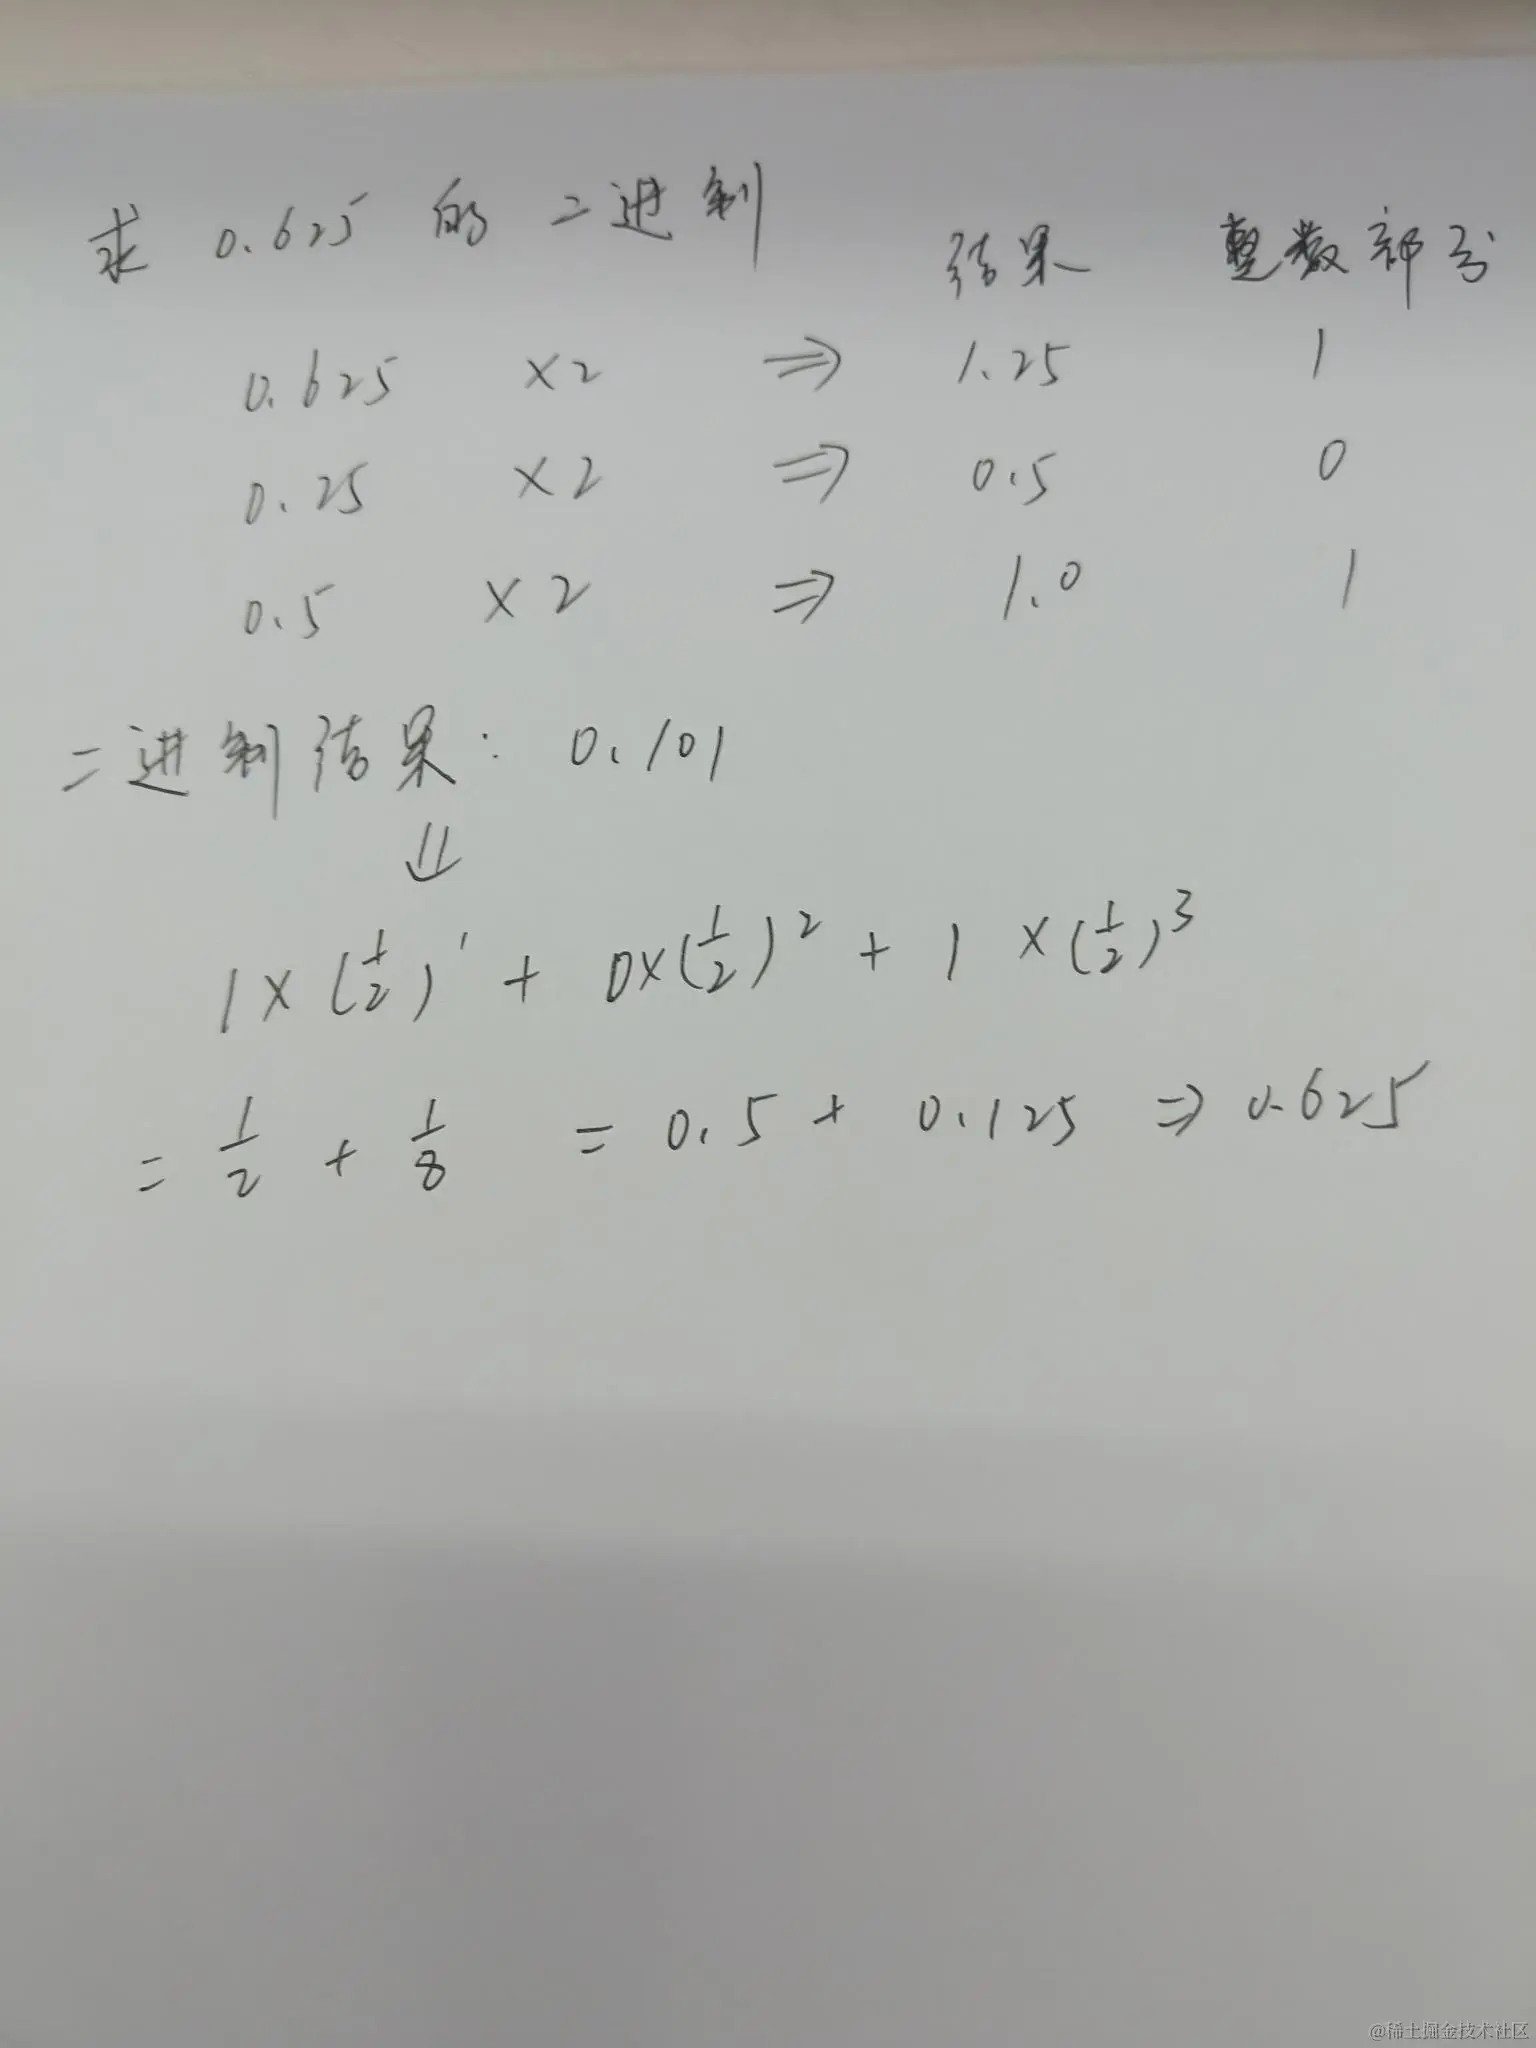 求 0.625 的 二进制
结果 整数部分
0.625 ×2 ⇒ 1.25 1
0.25 ×2 ⇒ 0.5 0
0.5 ×2 ⇒ 1.0 1
二进制结果: 0.101
⇓
1×(1/2)¹ + 0×(1/2)² + 1×(1/2)³
= 1/2 + 1/8 = 0.5 + 0.125 ⇒ 0.625
@稀土掘金技术社区